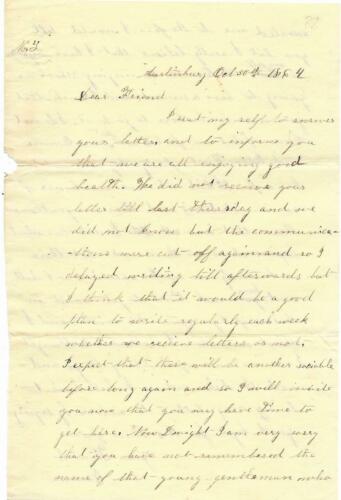 No 3
Oct 30th 1864
Dear Friend
I seat my self to answer
your letter and to informe you
that we are all enjoying good
health. We did not receive your
letter till last thursday and we
did not know but the communica-
tions were cut off again and so I
delayed writing till afterwards but
I think that it would be a good
plan to write regularly each week
whether we recieve letters or not.
I expect that there will be another sociable
before long again and so I will invite
you now that you may have time to
get here. Now Dwight I am very sorry
that you have not remembered the
name of that young gentleman who